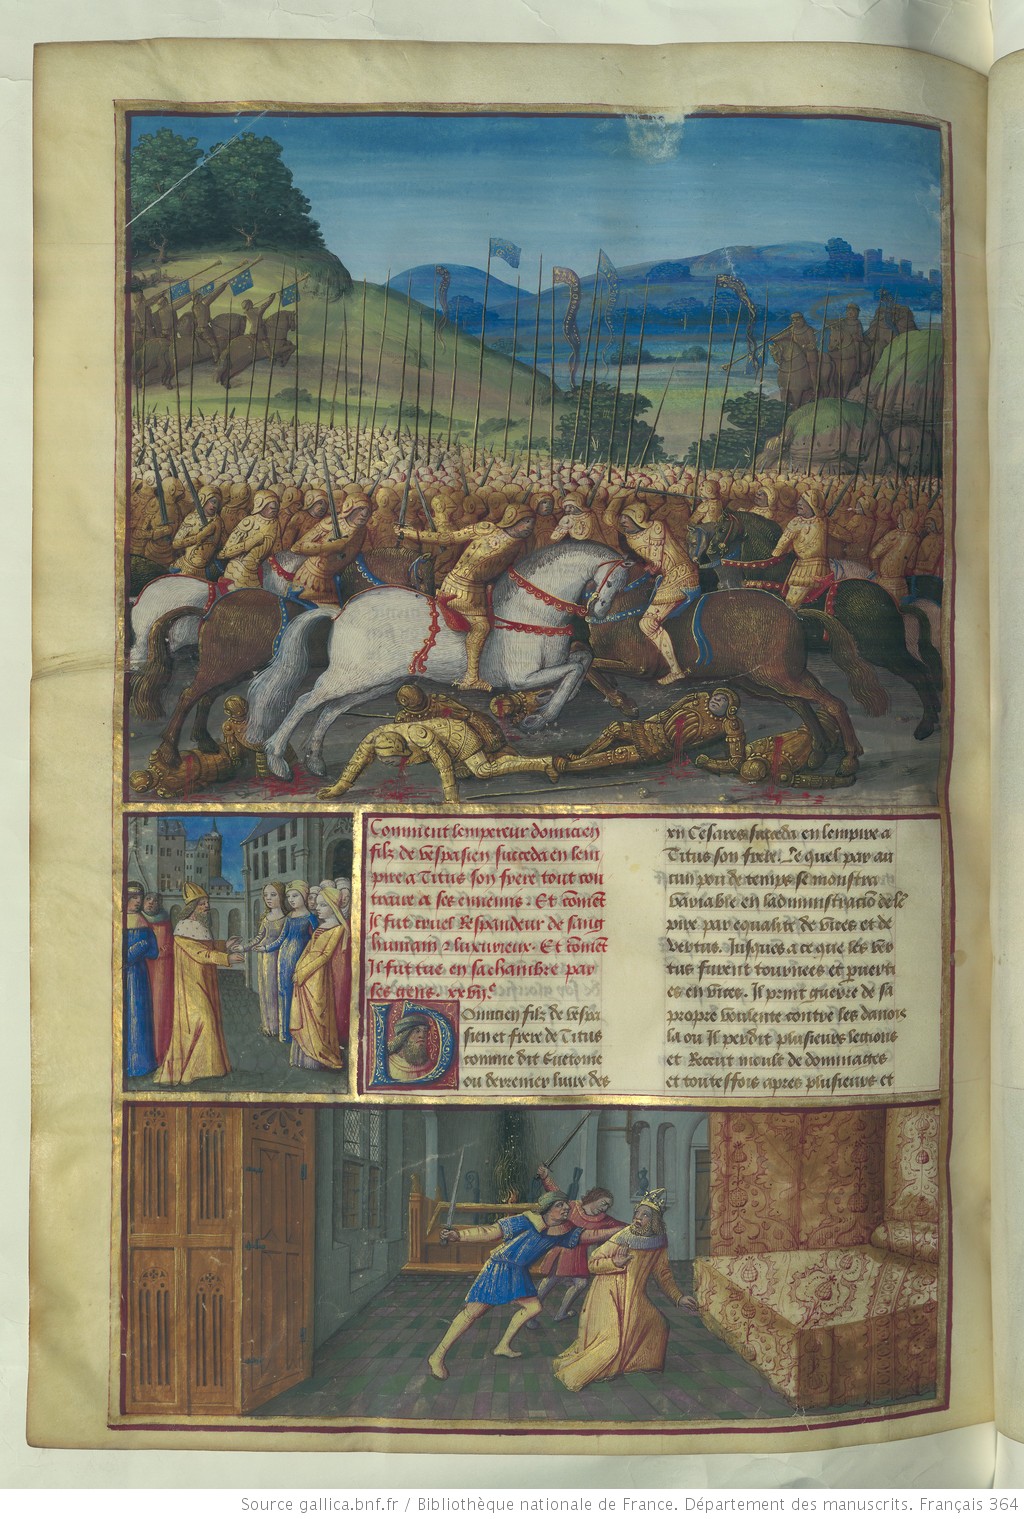 Comment lempereur domicien
filz de vespasien succeda en lem
pire a Titus son frere tout con
traire a ses enmeurs. Et cõmēt
Il fut cruel Respandeur de sang
humain & luxurieux. Et cõmēt
Il fut tue en sa chambre par
ses gens. xxvijᵉ
Domicien filz de vespa
sien et frere de Titus
comme dit Suetone
ou derrenier livre des
xii Cesares succeda en lempire a
Titus son frere. Le quel par au
cun peu de temps se monstra
variable en ladministraciõ de lē
pire par equalite de vices et de
vertus. Jusques a ce que les ver
tus furent tournees et
es en vices. Il print guerre de sa
propre voulente contre les danois
la ou Il perdit plusieurs legions
et Receut moult de dommages
et toutesfois apres plusieurs et
Source gallica.bnf.fr / Bibliothèque nationale de France. Département des manuscrits. Français 364